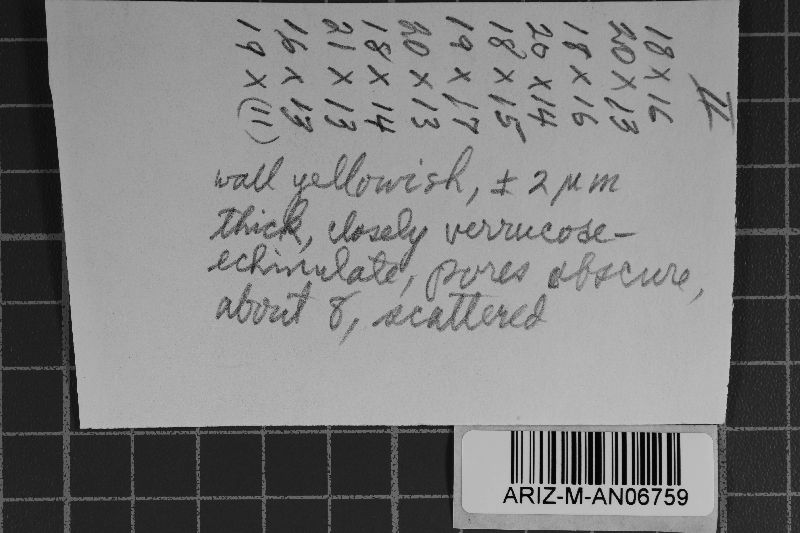 II
18 x 16
20 x 13
18 x 16
20 x 14
18 x 15
19 x 17
20 x 13
18 x 14
21 x 13
16 x 13
19 x (11)
wall yellowish, ± 2 µm
thick, closely verrucose-
echinulate, pores obscure,
about 8, scattered
ARIZ-M-AN06759